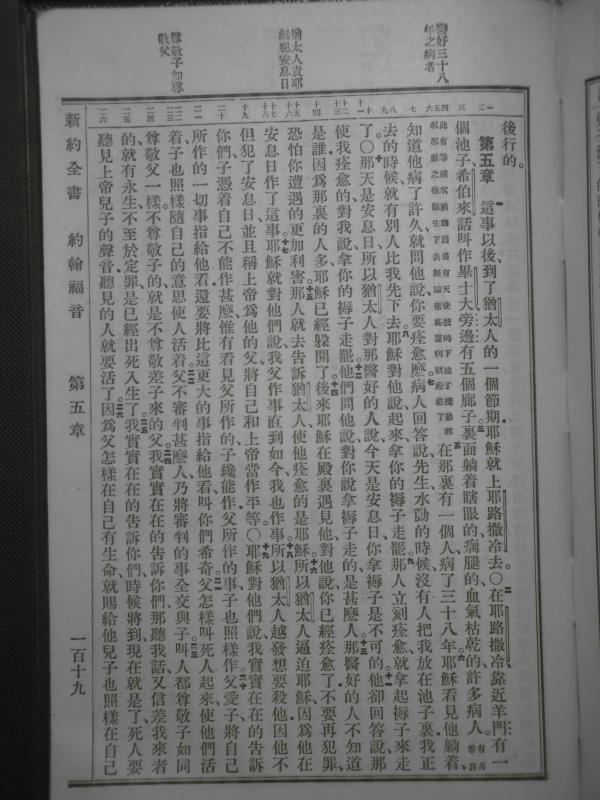 醫好三十八
年之病者
猶太人責耶
穌犯安息日
尊敬子如尊
敬父
後行的。
第五章 這事以後到了猶太人的一個節期、耶穌就上耶路撒冷去。〇在耶路撒冷靠近羊門有一
個池子、希伯來話叫作畢士大、旁邊有五個廊子。裏面躺着瞎眼的、病腿的、血氣枯乾的、許多病人。有古卷在
此有等候水動因爲有天使按時下池子攪動那
水水動之後誰先下去無論甚麼病就痊愈了
在那裏有一個人、病了三十八年。耶穌看見他躺着、
知道他病了許久、就問他說、你要痊愈麼。病人回答說、先生、水動的時候、沒有人把我放在池子裏、我正
去的時候、就有別人比我先下去。耶穌對他說、起來、拿你的褥子走罷。那人立刻痊愈、就拿起褥子來走
了。〇那天是安息日、所以猶太人對那醫好的人說、今天是安息日、你拿褥子是不可的。他卻回答說、那
使我痊愈的、對我說、拿你的褥子走罷。他們問他說、對你說拿褥子走的、是甚麼人。那醫好的人不知道
是誰、因爲那裏的人多、耶穌已經躲開了。後來耶穌在殿裏遇見他、對他說、你已經痊愈了、不要再犯罪、
恐怕你遭遇的更加利害。那人就去告訴猶太人、使他痊愈的是耶穌。所以猶太人逼迫耶穌、因爲他在
安息日作了這事。耶穌就對他們說、我父作事直到如今、我也作事。所以猶太人越發想要殺他、因他不
但犯了安息日、並且稱上帝爲他的父、將自己和上帝當作平等。〇耶穌對他們說、我實實在在的告訴
你們、子憑着自己不能作甚麼、惟有看見父所作的、子纔能作、父所作的事、子也照樣作。父愛子、將自己
所作的一切事指給他看、還要將比這更大的事指給他看、叫你們希奇。父怎樣叫死人起來、使他們活
着、子也照樣隨自己的意思使人活着。父不審判甚麼人、乃將審判的事全交與子。叫人都尊敬子、如同
尊敬父一樣。不尊敬子的、就是不尊敬差子來的父。我實實在在的告訴你們、那聽我話、又信差我來者
的、就有永生、不至於定罪、是已經出死入生了。我實實在在的告訴你們、時候將到、現在就是了、死人要
聽見上帝兒子的聲音、聽見的人就要活了。因爲父怎樣在自己有生命、就賜給他兒子也照樣在自己
新約全書 約翰福音 第五章 一百十九